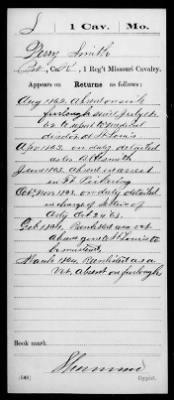 S | 1 Cav. | Mo.
Perry Smith
Pvt., Co. K, 1 Reg't Missouri Cavalry.
Appears on Returns as follows:
Aug 1862. Absent on sick
furlough since July
to report to medical
director at St Louis
Apr 1863. on duty detailed
as Co. Blksmith
June 1863. absent in arrest
in
Oct, Nov 1863. on duty detailed
in charge of
Oct 24 63.
Feb 1864. Reenlisted as a vet
absent gone to St Louis to
be mustered
March 1864. Reenlisted as a
Vet. Absent on furlough
Book mark:
(546)
Copyist.